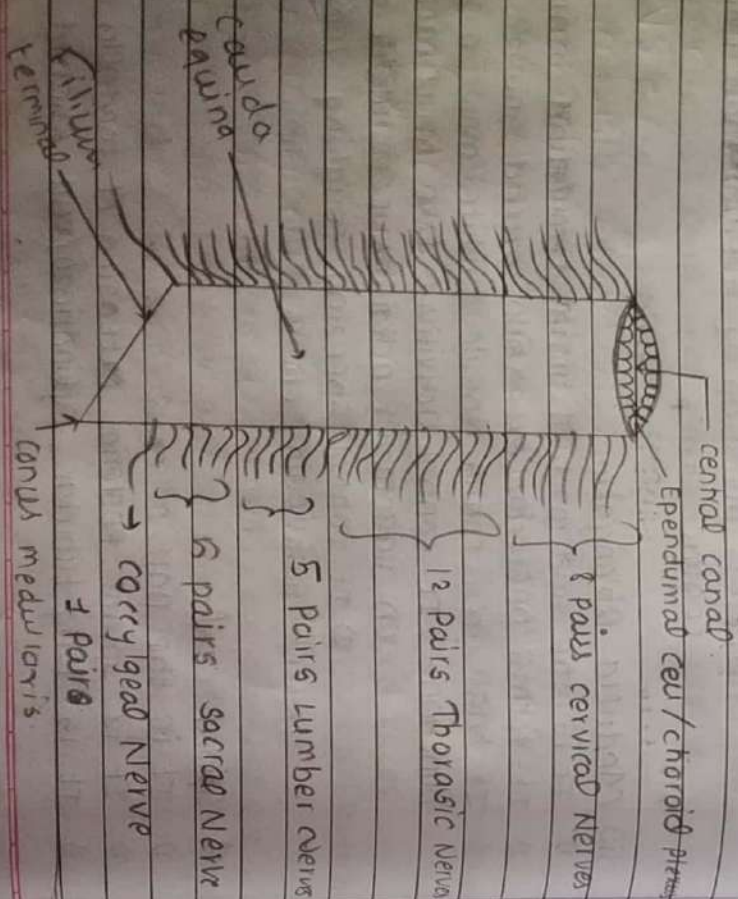 central canal.
Ependymal cell/choroid plexus
8 pairs cervical Nerves
12 Pairs Thorasic Nerve
5 Pairs Lumber Nerve
5 pairs sacral Nerve
→ coccygeal Nerve
1 pairs
conus medullaris.
cauda
equina
filium
terminal